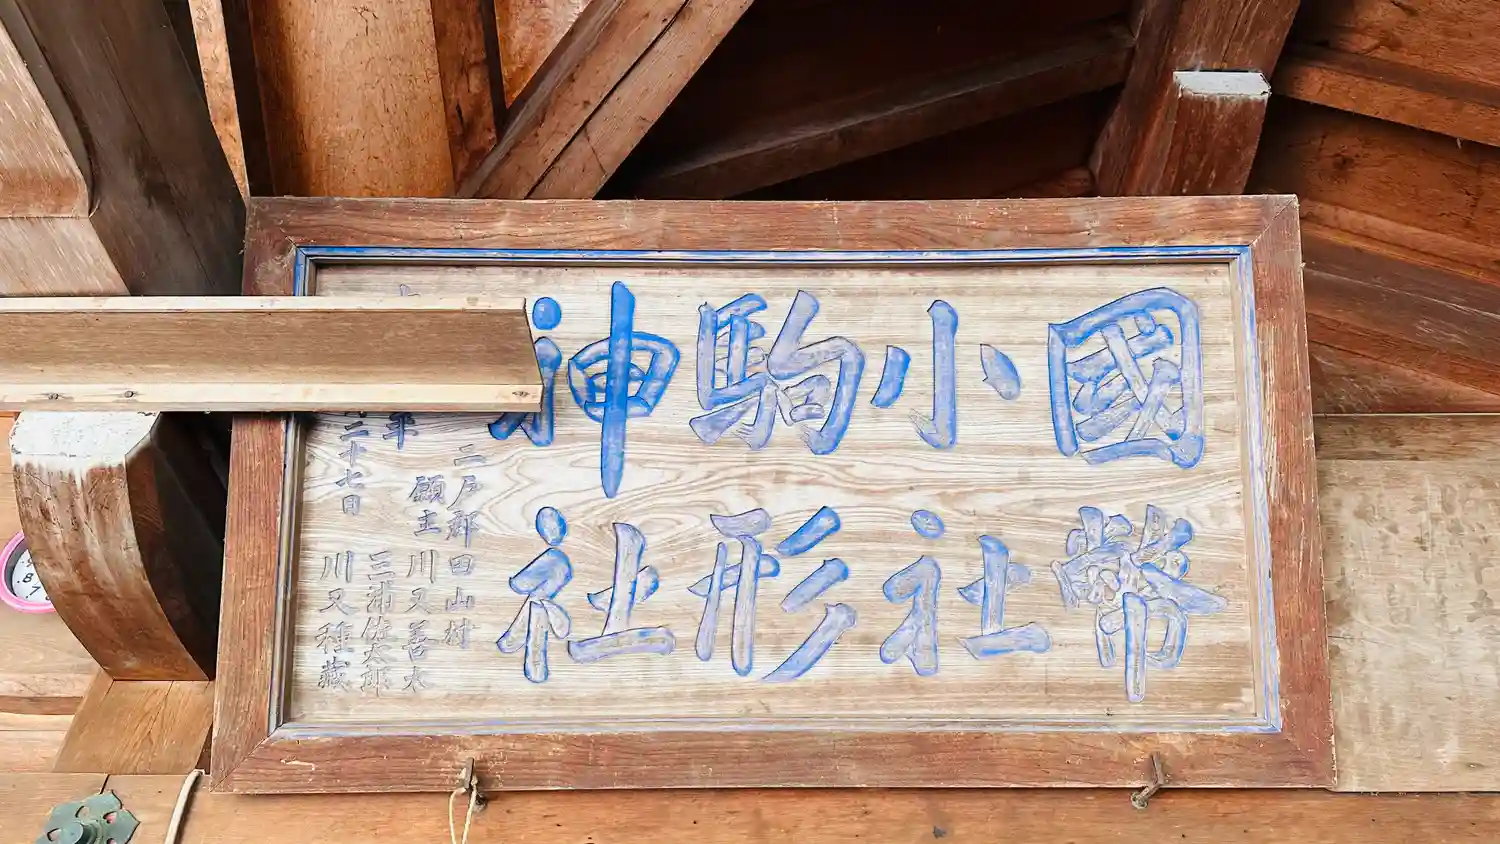 國幣
小社
駒形
神社
二戸郡田山村
願主 川又善太
三浦佐太郎
年
二十七日
川又種蔵